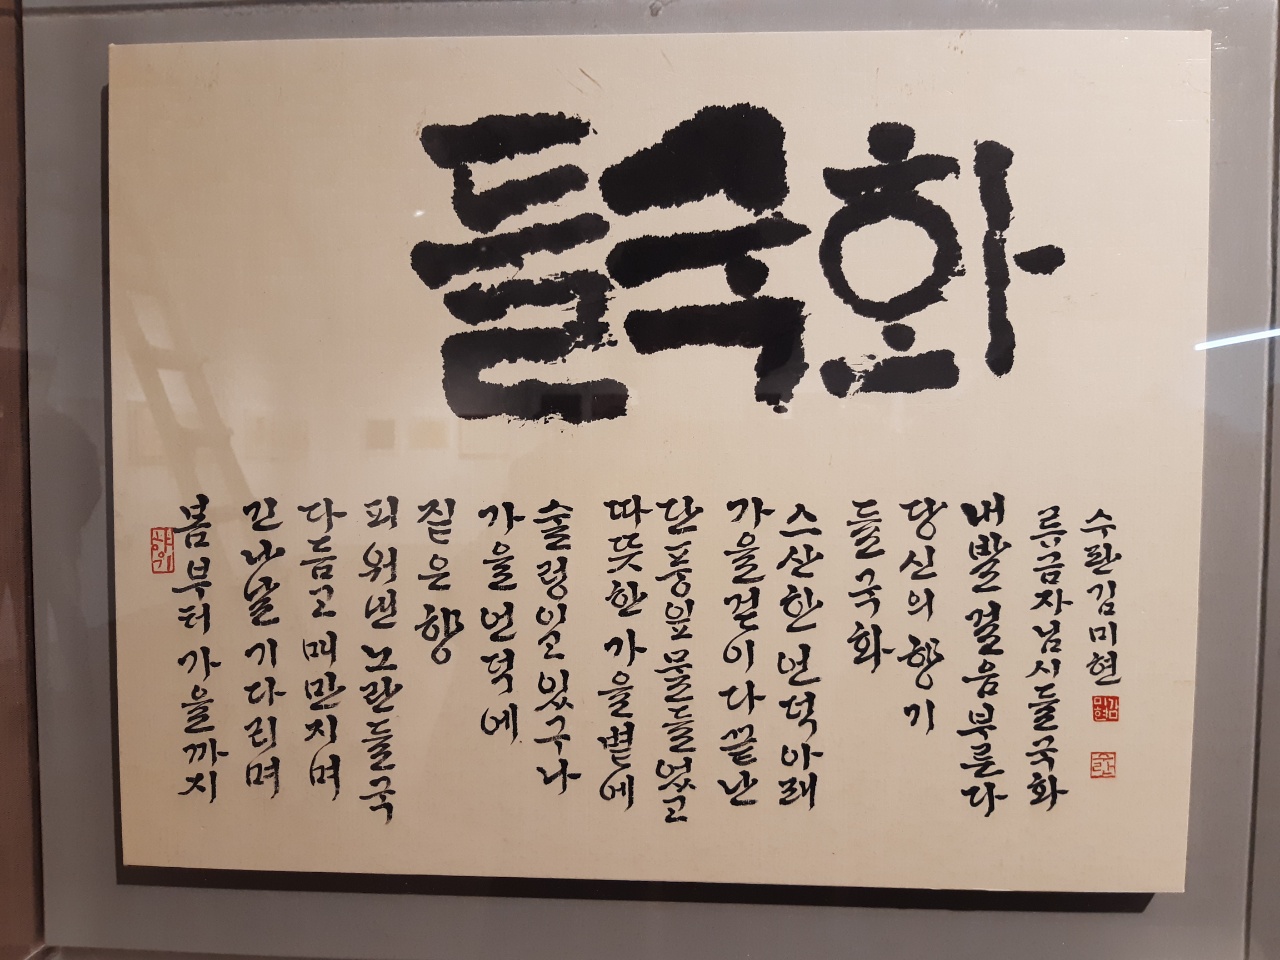 들국화
봄부터 가을까지
긴 나날 기다리며
다듬고 매만지며
피워낸 노란 들국
짙은 향
가을 언덕에
술렁이고 있구나
따뜻한 가을볕에
단풍잎 물들었고
가을걷이 다 끝난
스산한 언덕 아래
들국화
당신의 향기
내 발걸음 부른다
류금자님 시 들국화
수판 김미현
김미현